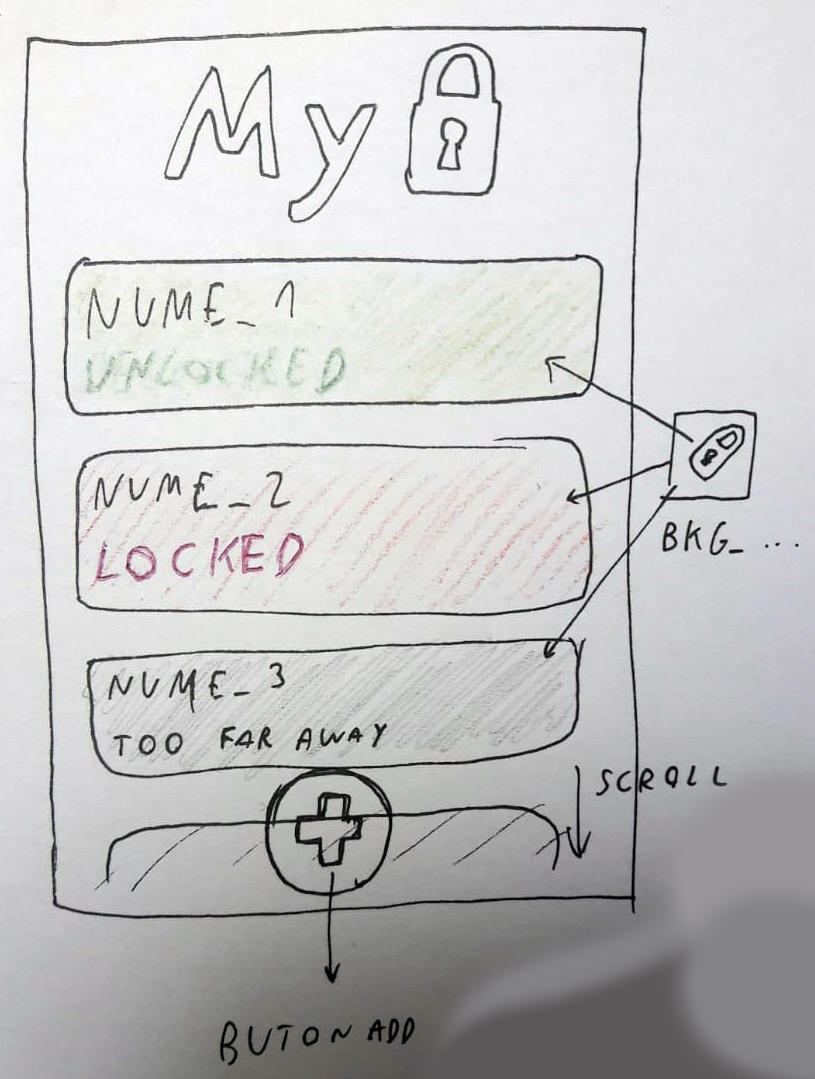 My
NUME_1
UNLOCKED
NUME_2
LOCKED
BKG_...
NUME_3
TOO FAR AWAY
SCROLL
BUTON ADD